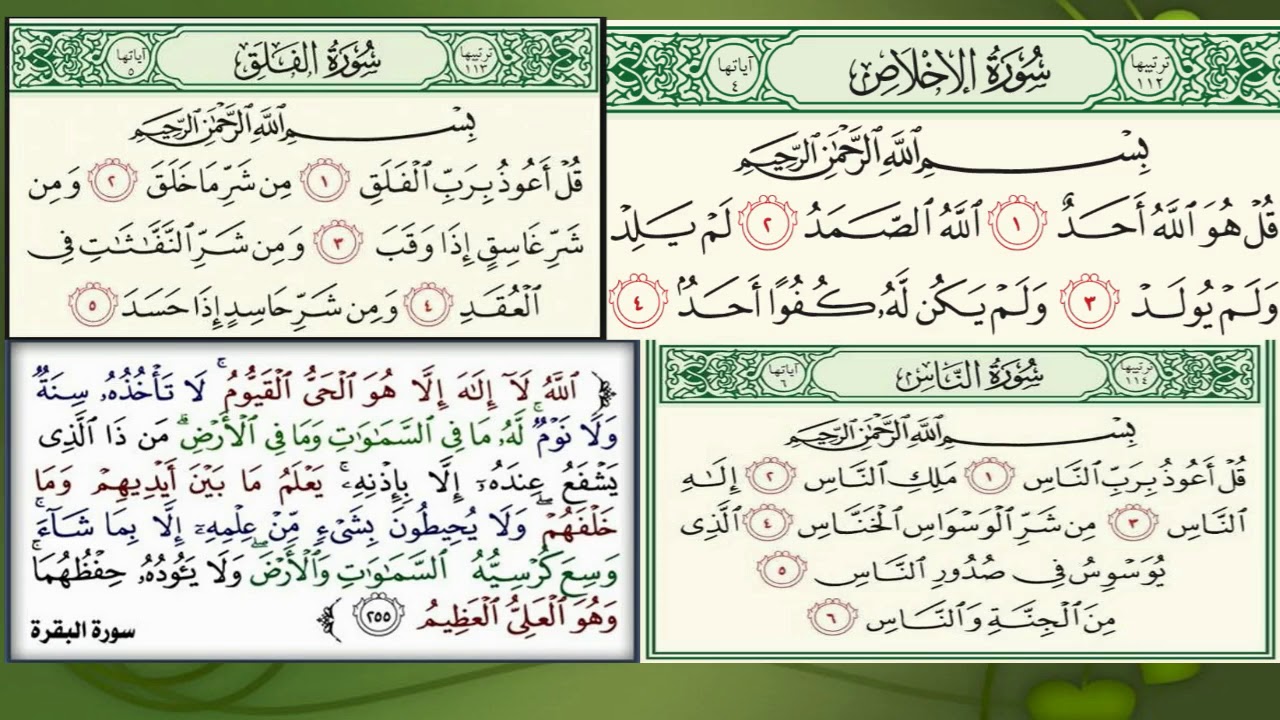 سُورَةُ الإِخْلَاصِ
ترتيبها ١١٢
آياتها ٤
بِسْمِ ٱللَّهِ ٱلرَّحْمَٰنِ ٱلرَّحِيمِ
قُلْ هُوَ ٱللَّهُ أَحَدٌ ١ ٱللَّهُ ٱلصَّمَدُ ٢ لَمْ يَلِدْ
وَلَمْ يُولَدْ ٣ وَلَمْ يَكُن لَّهُۥ كُفُوًا أَحَدٌۢ ٤
سُورَةُ الفَلَقِ
ترتيبها ١١٣
آياتها ٥
بِسْمِ ٱللَّهِ ٱلرَّحْمَٰنِ ٱلرَّحِيمِ
قُلْ أَعُوذُ بِرَبِّ ٱلْفَلَقِ ١ مِن شَرِّ مَا خَلَقَ ٢ وَمِن
شَرِّ غَاسِقٍ إِذَا وَقَبَ ٣ وَمِن شَرِّ ٱلنَّفَّٰثَٰتِ فِى
ٱلْعُقَدِ ٤ وَمِن شَرِّ حَاسِدٍ إِذَا حَسَدَ ٥
سُورَةُ النَّاسِ
ترتيبها ١١٤
آياتها ٦
بِسْمِ ٱللَّهِ ٱلرَّحْمَٰنِ ٱلرَّحِيمِ
قُلْ أَعُوذُ بِرَبِّ ٱلنَّاسِ ١ مَلِكِ ٱلنَّاسِ ٢ إِلَٰهِ
ٱلنَّاسِ ٣ مِن شَرِّ ٱلْوَسْوَاسِ ٱلْخَنَّاسِ ٤ ٱلَّذِى
يُوَسْوِسُ فِى صُدُورِ ٱلنَّاسِ ٥
مِنَ ٱلْجِنَّةِ وَٱلنَّاسِ ٦
ٱللَّهُ لَآ إِلَٰهَ إِلَّا هُوَ ٱلْحَىُّ ٱلْقَيُّومُ ۚ لَا تَأْخُذُهُۥ سِنَةٌ
وَلَا نَوْمٌ ۚ لَّهُۥ مَا فِى ٱلسَّمَٰوَٰتِ وَمَا فِى ٱلْأَرْضِ ۗ مَن ذَا ٱلَّذِى
يَشْفَعُ عِندَهُۥٓ إِلَّا بِإِذْنِهِۦ ۚ يَعْلَمُ مَا بَيْنَ أَيْدِيهِمْ وَمَا
خَلْفَهُمْ ۖ وَلَا يُحِيطُونَ بِشَىْءٍ مِّنْ عِلْمِهِۦٓ إِلَّا بِمَا شَآءَ ۚ
وَسِعَ كُرْسِيُّهُ ٱلسَّمَٰوَٰتِ وَٱلْأَرْضَ ۖ وَلَا يَـُٔودُهُۥ حِفْظُهُمَا ۚ
وَهُوَ ٱلْعَلِىُّ ٱلْعَظِيمُ ٢٥٥
سورة البقرة